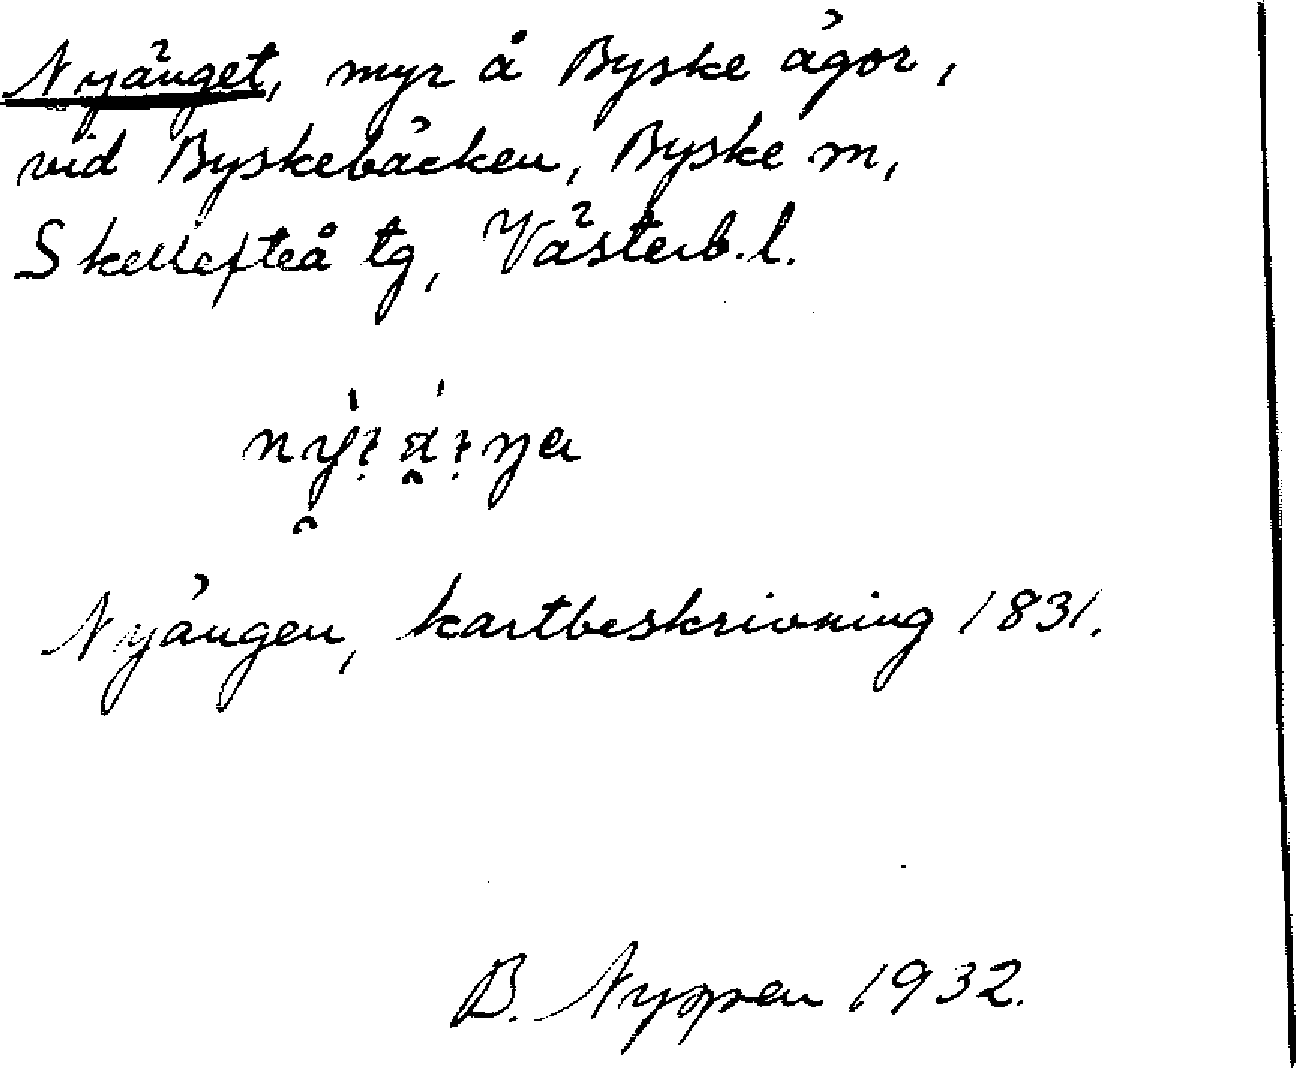 Nyänget, myr å Byske ägor,
vid Byskebäcken, Byske sn,
Skellefteå tg, Västerb. l.
Nyängen, kartbeskrivning 1831.
B. 1932.